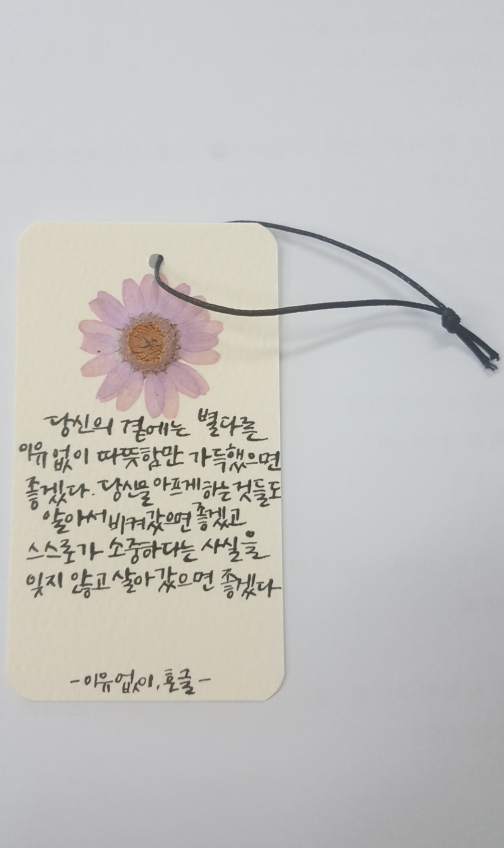 당신의 곁에는 별다른
이유 없이 따뜻함만 가득했으면
좋겠다. 당신을 아프게 하는 것들도
알아서 비켜 갔으면 좋겠고
스스로가 소중하다는 사실을
잊지 않고 살아 갔으면 좋겠다
-이유 없이, 흔글-